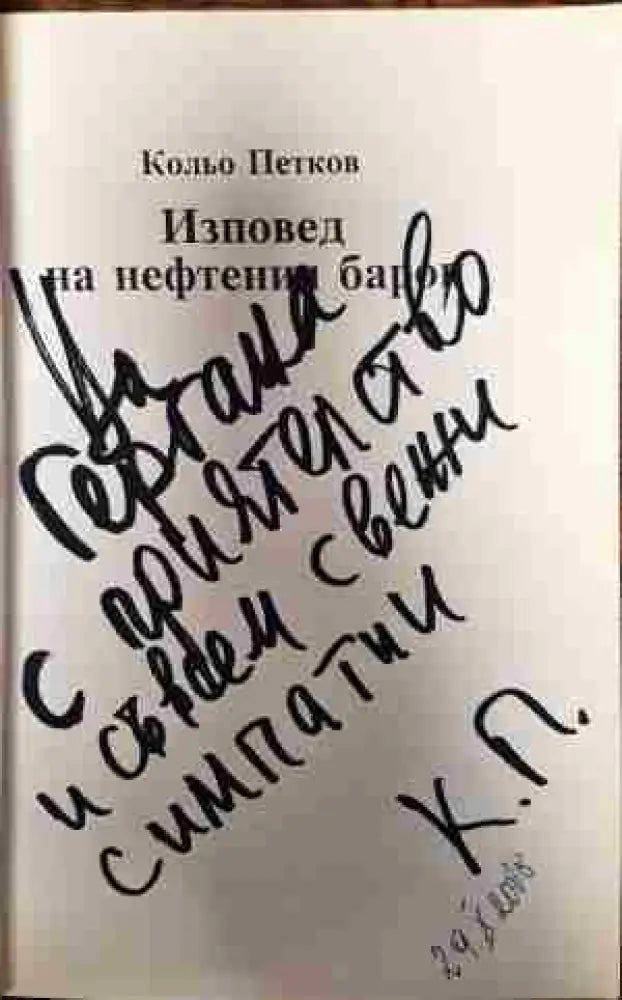 Кольо Петков
Изповед
на нефтения барон
На
Гергана
с приятелство
и съвсем свенни
симпатии
К.П.